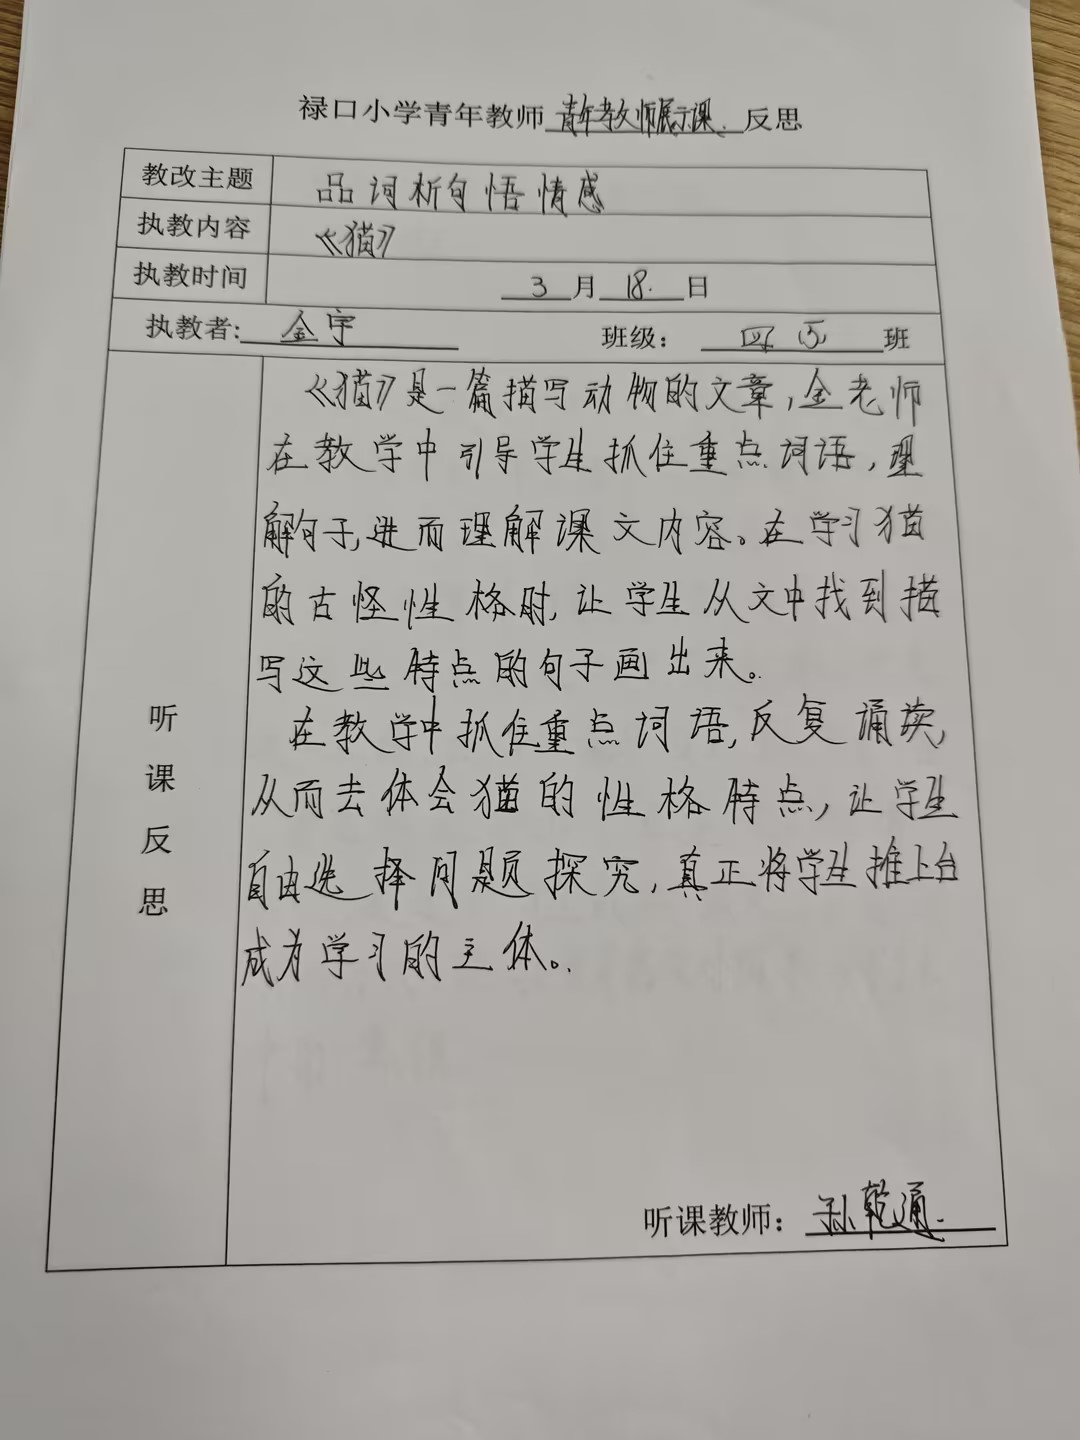 禄口小学青年教师青年教师展示课反思
教改主题 品词析句悟情感
执教内容 《猫》
执教时间 3月18日
执教者:金宇 班级:四(5)班
听课反思
《猫》是一篇描写动物的文章,金老师
在教学中引导学生抓住重点词语,理
解句子,进而理解课文内容。在学习猫
的古怪性格时,让学生从文中找到描
写这些特点的句子画出来。
在教学中抓住重点词语,反复诵读,
从而去体会猫的性格特点,让学生
自由选择问题探究,真正将学生推上台
成为学习的主体。
听课教师:孙乾通